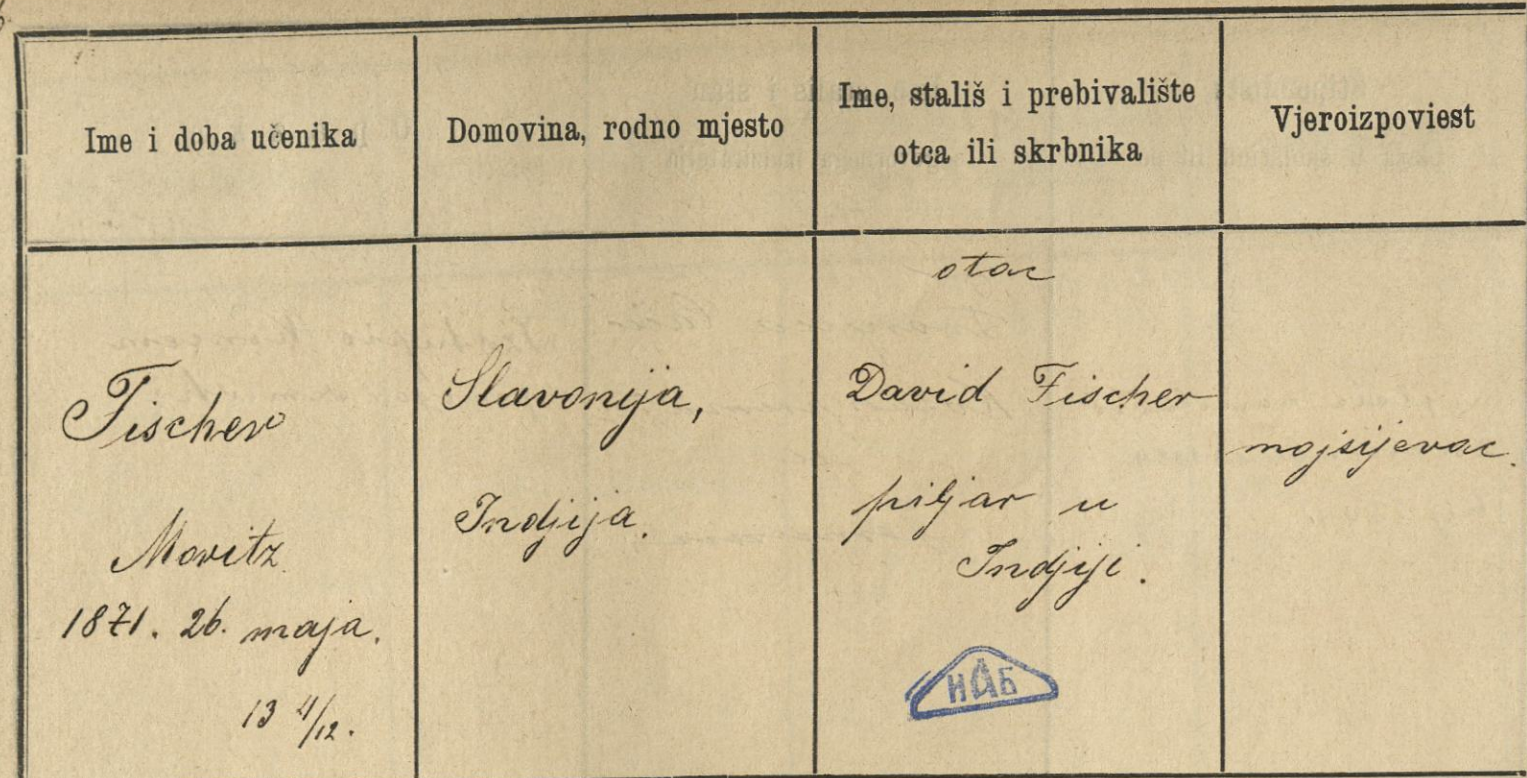 Ime i doba učenika
Domovina, rodno mjesto
Ime, stališ i prebivalište
otca ili skrbnika
Vjeroizpoviest
Fischer
Moritz
1871. 26. maja.
13 4/12.
Slavonija,
Indjija.
otac
David Fischer
piljar u
Indjiji.
ИАБ
mojsijevac.